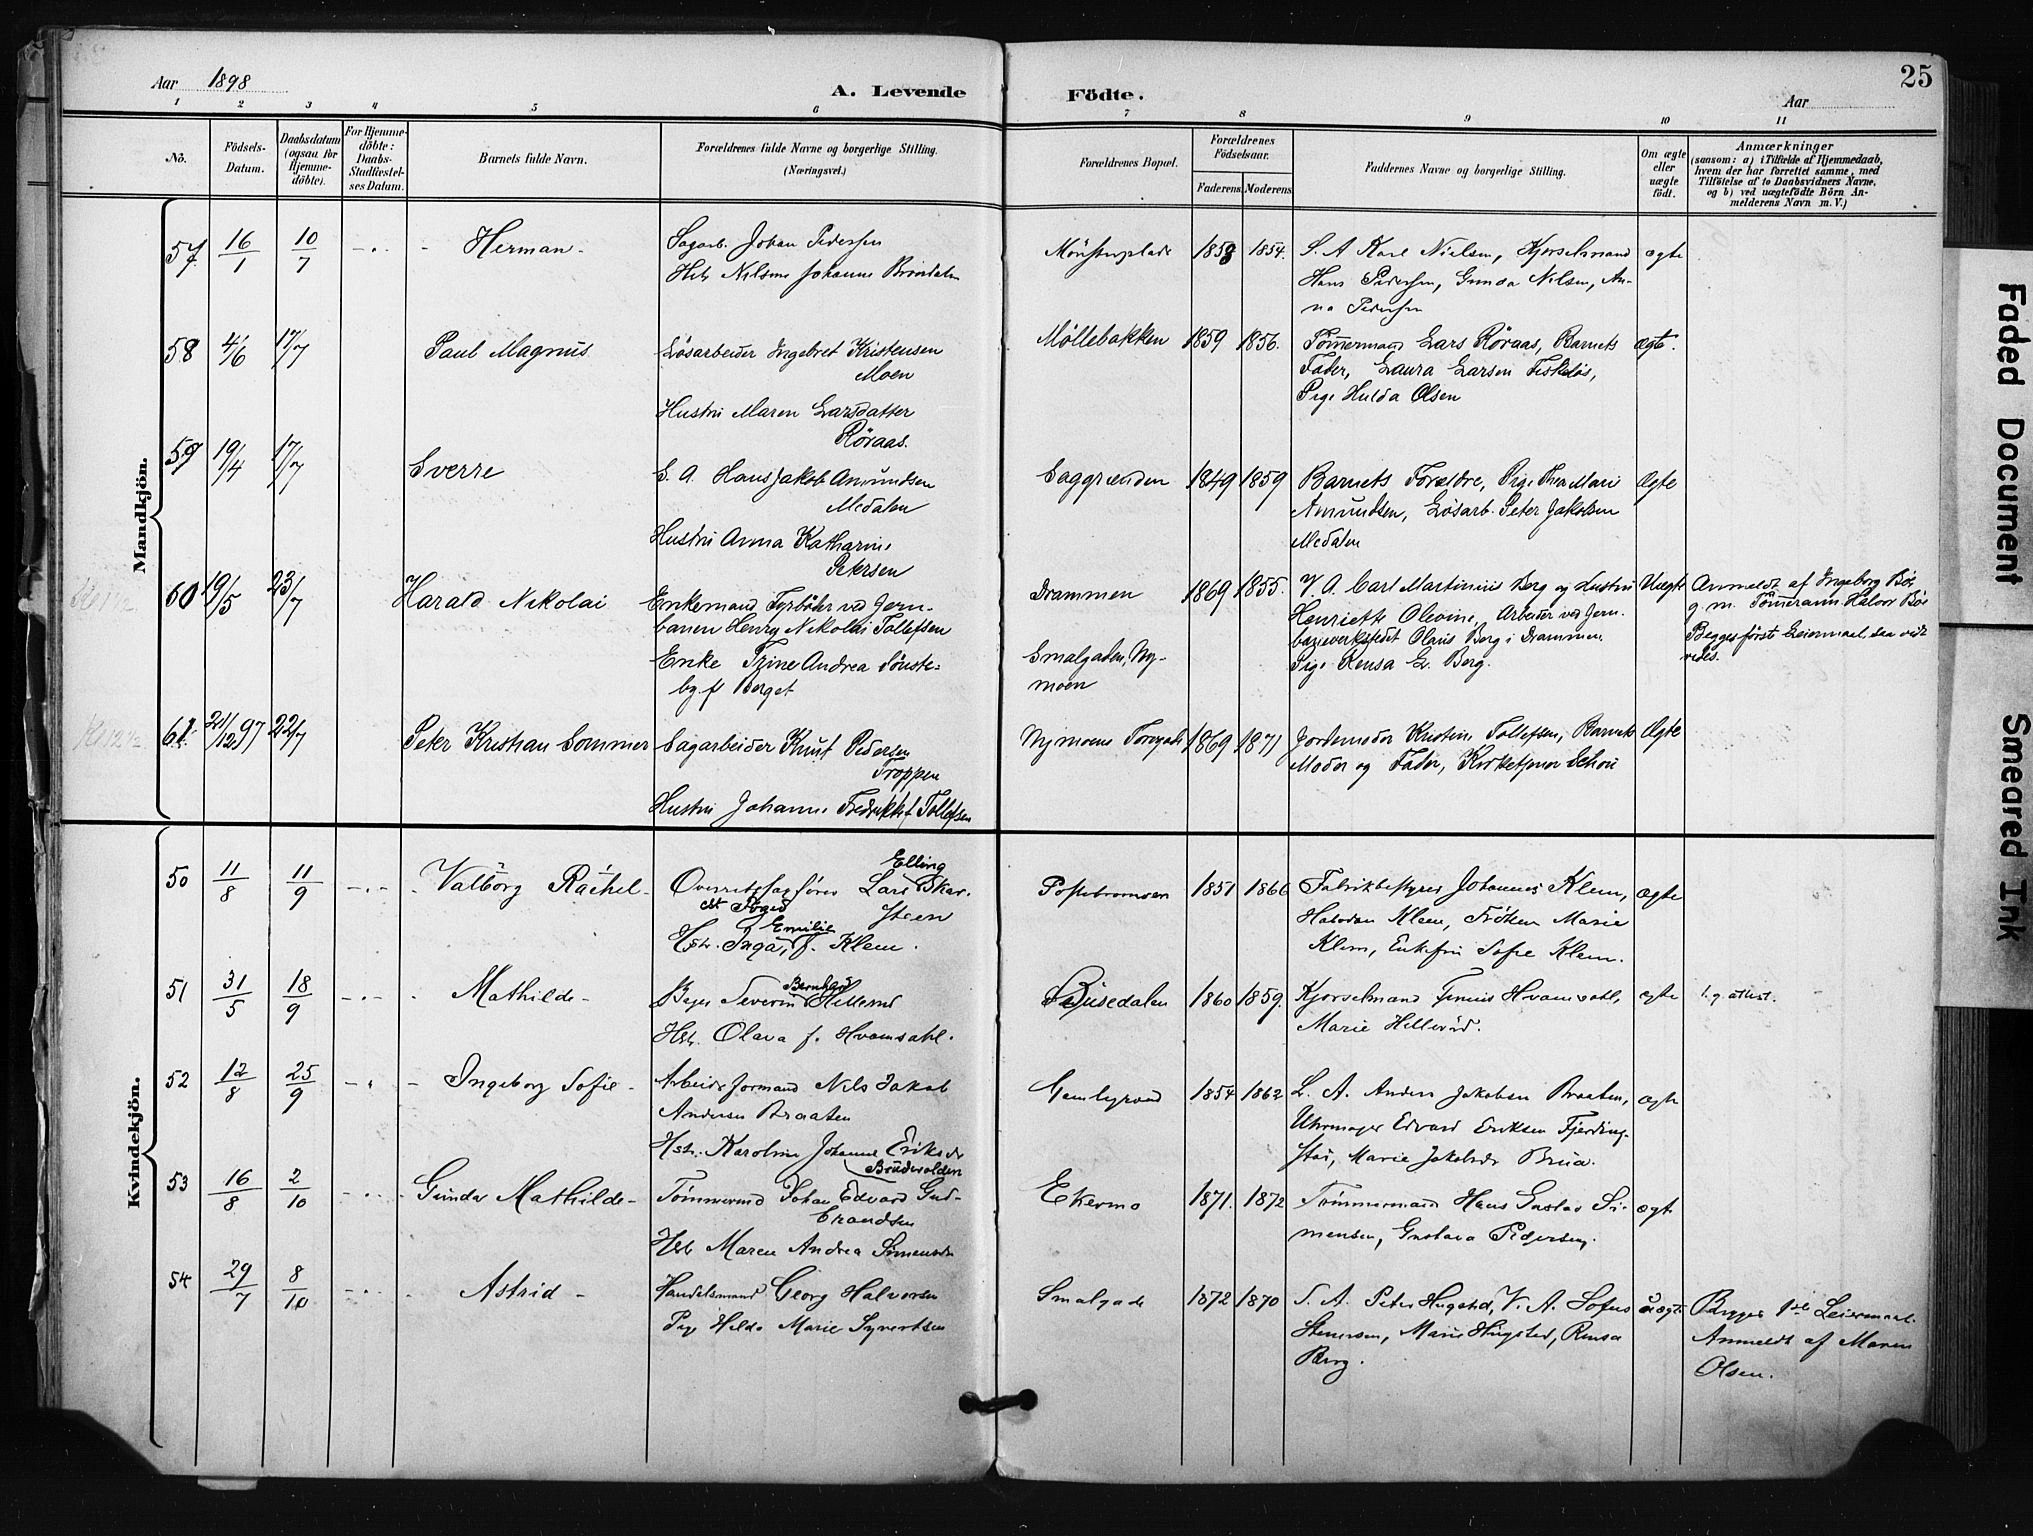 Aar 1898
A. Levende Födte.
25
Aar
1 2 3 4 5 6 7 8 9 10 11
No.
Födsels-Datum.
Daabsdatum (ogsaa for Hjemme-döbte).
For Hjemme-döbte: Daabs-Stadfæstel-ses Datum.
Barnets fulde Navn.
Forældrenes fulde Navne og borgerlige Stilling. (Næringsvei.)
Forældrenes Bopæl.
Forældrenes Födselsaar.
Faderens. Moderens.
Faddernes Navne og borgerlige Stilling.
Om ægte eller uægte födt.
Anmærkninger
(saasom: a) i Tilfælde af Hjemmedaab,
hvem der har forrettet samme, med
Tilföielse af to Daabsvidners Navne,
og b) ved uægtefödte Börn An-
melderens Navn m. V.)
Mandkjön.
57 16/1 10/7 - . - Herman - Sagarb. Johan Pedersen 1858 1854. S. A. Karl Nielsen, Kjørselmand ægte
Hans Pedersen, Gunda Nilsen, An-
na Pedersen
58 4/6 17/7 Paul Magnus Løsarbeider Ingebret Kristensen Møllebakken 1859 1856. Tømmermand Lars Røraas, Barnets ægte.
Moen Fader, Laura Larsen
Hustru Maren Larsdatter Pige Hulda Olsen
Røraas.
59 19/4 17/7 Sverre S. A. Hans Jakob Amundsen Saggrenden 1849 1859 Barnets Forældre, Pige Thea Mari Ægte
Medalen Amundsen, Løsarb. Peter Jakobsen
Hustru Anna Katharine Medalen
Petersen
60 19/5 23/7 Harald Nikolai Enkemand Fyrbøter ved Jern- Drammen 1869 1855. V. A. Carl Martinius Berg og Hustru Uægte Anmeldt af Ingeborg Bøe
banen Henry Nikolai Tollefsen Henriette Olevine, Arbeider ved Jern- g. m. Tømmerm. Halvor Bøe
Enke Trine Andrea Sønste- Smalgaden, Ny- baneverkstedet Olaus Berg i Drammen. Begges første Leiermaal, saavidt
by f. Berget moen Pige Rensa L. Berg. vides.
61 21/12 97 22/7 Peter Kristian Sommer Sagarbeider Knut Pedersen Nymoens Torvgade 1869 1871 Jordemoder Kristine Tollefsen, Barnets Ægte
Troppen Moder og Fader, Kirketjener Schou
Hustru Johanne Fredrikke f. Tollefsen
Kvindekjön.
50 11/8 11/9 - . - Valborg Rachel - Overretssagfører Lars Elling Skar- 1851 1866 Fabrikbestyrer Johannes Klem, ægte
steen Halvdan Klem, Frøken Marie
Hstr. Inga Emilie, f. Klem. Klem, Enkefru Sofie Klem.
51 31/5 18/9 - . - Mathilde - Severin Bernhard Hillerud 1860 1859. Kjørselmand Hvamsahl, ægte
Hstr. Olava f. Hvamsahl. Marie Hillerud.
52 12/8 25/9 - . - Ingeborg Sofie - Arbeidsformand Nils Jakob Gamlegrend 1854 1862 L. A. Anders Jakobsen Braaten, ægte
Andersen Braaten Uhrmager Edvard Eriksen Fjerding-
Hstr. Karoline Johanne Eriksdr stad, Marie Jakobsdr Brua.
Brudevolden
53 16/8 2/10 - . - Gunda Mathilde - Tømmermd Johan Edvard Gud- Ekermo 1871. 1872 Tømmermand Hans Gustav Si- ægte
brandsen mensen, Gustava Pedersen.
Hstr Maren Andrea Simensdr
54 29/7 8/10 - . - Astrid - Handelsmand Georg Halvorsen Smalgade 1872 1870 S. A. Peter Hugsted, V. A. Sofus uægte Begges 1ste Leiermaal.
Pige Hilda Marie Syvertsen Stenersen, Marie Hugsted, Rensa Anmeldt af Maren
Berg. Olsen.
Faded Document
Smeared Ink